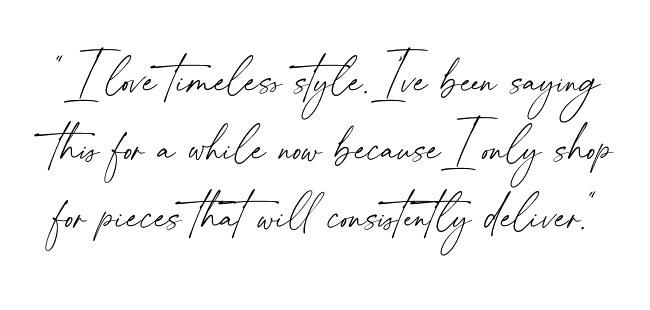 "I love timeless style. I've been saying
this for a while now because I only shop
for pieces that will consistently deliver."